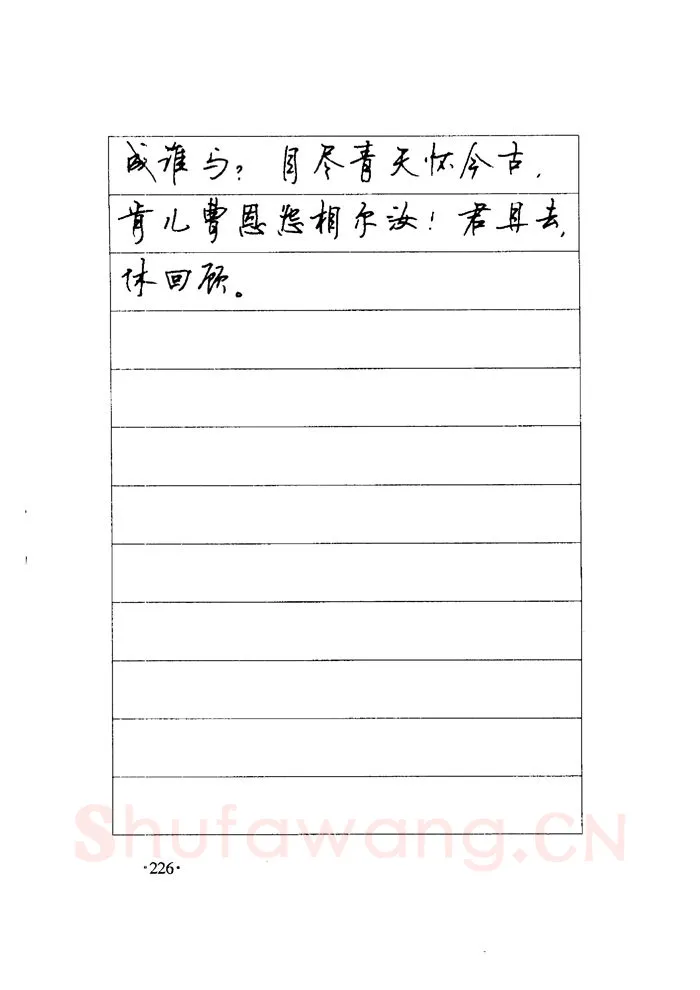 成谁与？目尽青天怀今古，
肯儿曹恩怨相尔汝！君且去，
休回顾。
Shufawang.CN
·226·